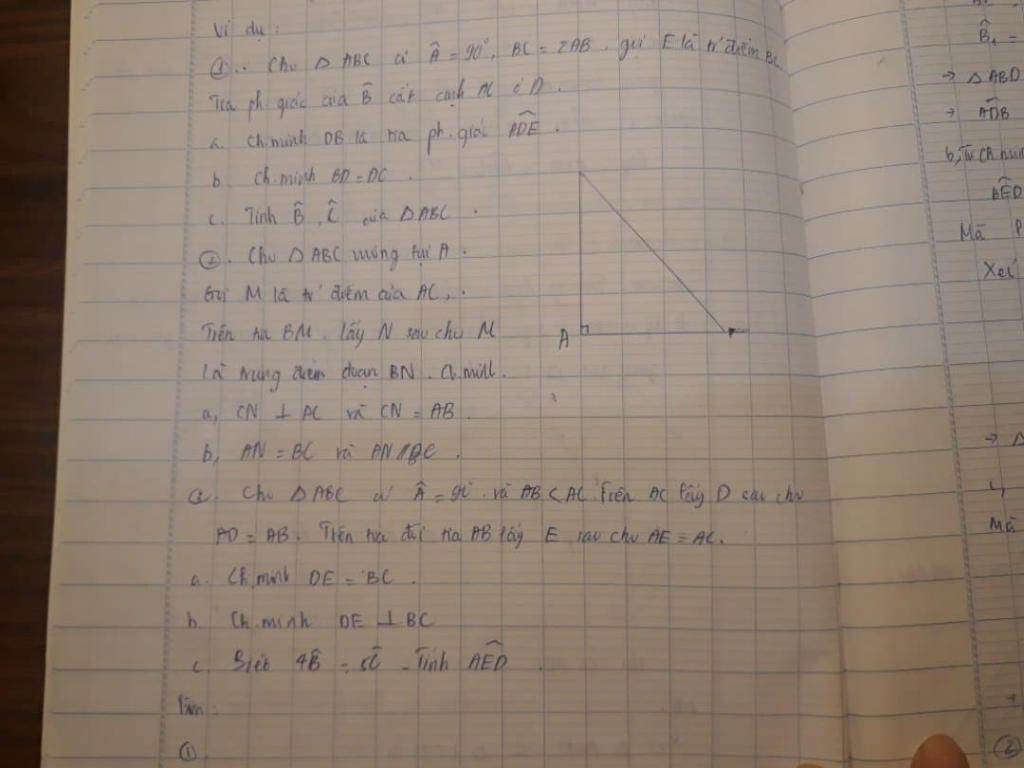 Ví dụ :
①.. Cho △ ABC có Â = 90°, BC = 2AB. gọi E là tr điểm BC.
Tia ph giác của B̂ cắt cạnh AC ở D.
a. Ch.minh DB là tia ph. giác ADE.
b Ch.minh BD = DC.
c. Tính B̂, Ĉ của △ABC.
②. Cho △ABC vuông tại A.
Gọi M là tr điểm của AC,.
Trên tia BM. lấy N sao cho M
là trung điểm đoạn BN. C.minh.
a, CN ⊥ AC và CN = AB.
b, AN = BC và AN // BC.
Cho △ABC có Â = 90° và AB < AC Trên AC lấy D sao cho
AD = AB. Trên tia đối tia AB lấy E sao cho AE = AC.
a. Ch.minh DE = BC.
b. Ch.minh DE ⊥ BC
c. Biết 4B̂ = 5Ĉ - Tính AED.
làm:
①
A
B̂₁ =
→ △ ABD
→ ADB
BED
Mà
Xét
→ △
Mà
②